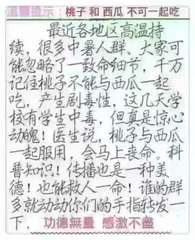 温馨提示：桃子和西瓜 不可一起吃
最近各地区高温持
续，很多中暑人群。大家可
能忽略了一致命细节，千万
记住桃子不能与西瓜一起
吃，产生剧毒性，这几天学
校有学生中毒，但真是惊心
动魄！医生说，桃子与西瓜一
起服用，会马上丧命。科
普知识！传播也是一种美
德！也能救人一命！谁的群
多就动动你们的手指转发一
下。功德無量 感激不盡